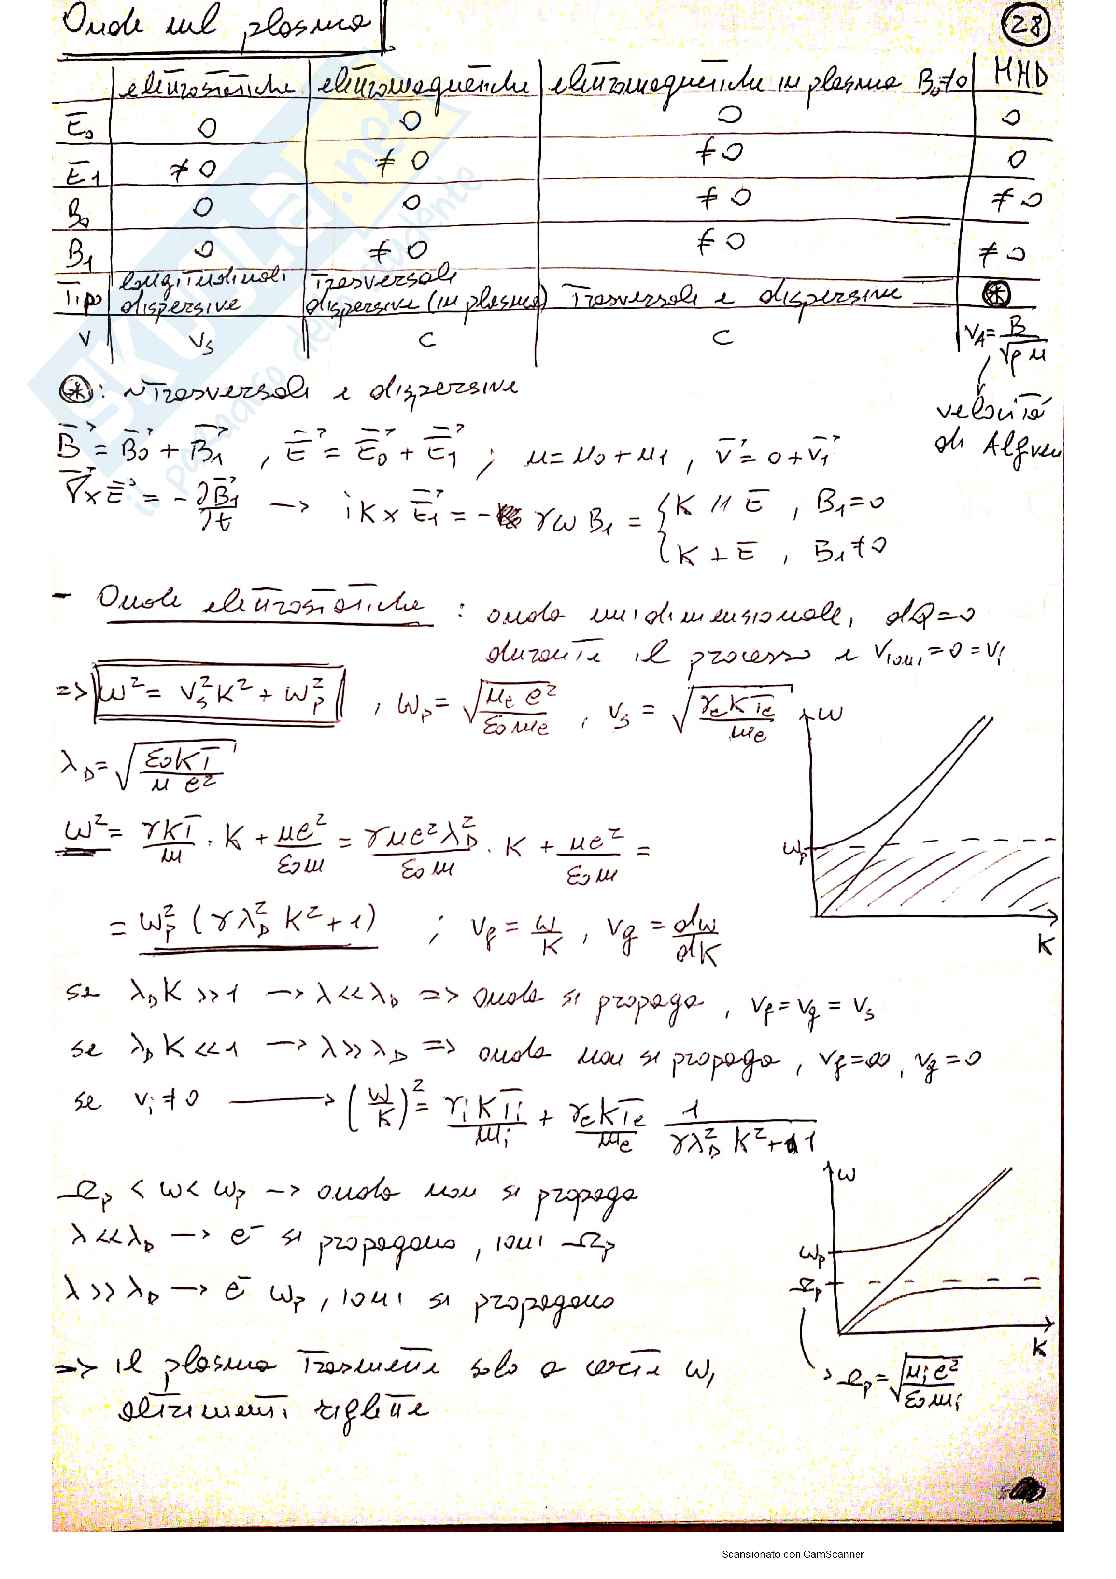 Onde nel plasma
28
elettrostatiche | elettromagnetiche | elettromagnetiche in plasma B₀≠0 | MHD
E₀ | 0 | 0 | 0 | 0
E₁ | ≠0 | ≠0 | ≠0 | 0
B₀ | 0 | 0 | ≠0 | ≠0
B₁ | 0 | ≠0 | ≠0 | ≠0
Tipo | longitudinali dispersive | Trasversali dispersive (in plasma) | Trasversali e dispersive | ⊛
v | vₛ | c | c | v_A = B/√(ρμ)
⊛: ~Trasversali e dispersive
velocità di Alfven
B⃗ = B⃗₀ + B⃗₁ , E⃗ = E⃗₀ + E⃗₁ ; n = n₀ + n₁ , v⃗ = 0 + v⃗₁
∇⃗×E⃗ = -∂B⃗₁/∂t → iK × E⃗₁ = - γω B₁ = { K // E , B₁ = 0
K ⊥ E , B₁ ≠ 0
- Onde elettrostatiche : onda unidimensionale, dQ=0
durante il processo e v_ioni = 0 = v_i
=> ω² = vₛ²K² + ω_p² , ω_p = √(n_e e²/ε₀m_e) , vₛ = √(γ_e KT_e/m_e)
λ_D = √(ε₀KT/n e²)
ω² = γKT/m · K + ne²/ε₀m = γne²λ_D²/ε₀m · K + ne²/ε₀m =
= ω_p² (γλ_D² K² + 1) ; v_f = ω/K , v_g = dω/dK
ω
ω_p
K
se λ_D K >> 1 → λ << λ_D => onda si propaga , v_f = v_g = vₛ
se λ_D K << 1 → λ >> λ_D => onda non si propaga , v_f = ∞ , v_g = 0
se v_i ≠ 0 → (ω/K)² = γ_i KT_i/m_i + γ_e KT_e/m_e 1/(γλ_D² K² + 1)
Ω_p < ω < ω_p → onda non si propaga
λ << λ_D → e⁻ si propagano , ioni Ω_p
λ >> λ_D → e⁻ ω_p , ioni si propagano
ω
ω_p
Ω_p
K
Ω_p = √(n_i e²/ε₀m_i)
=> Il plasma trasmette solo a certe ω,
altrimenti riflette
Scansionato con CamScanner